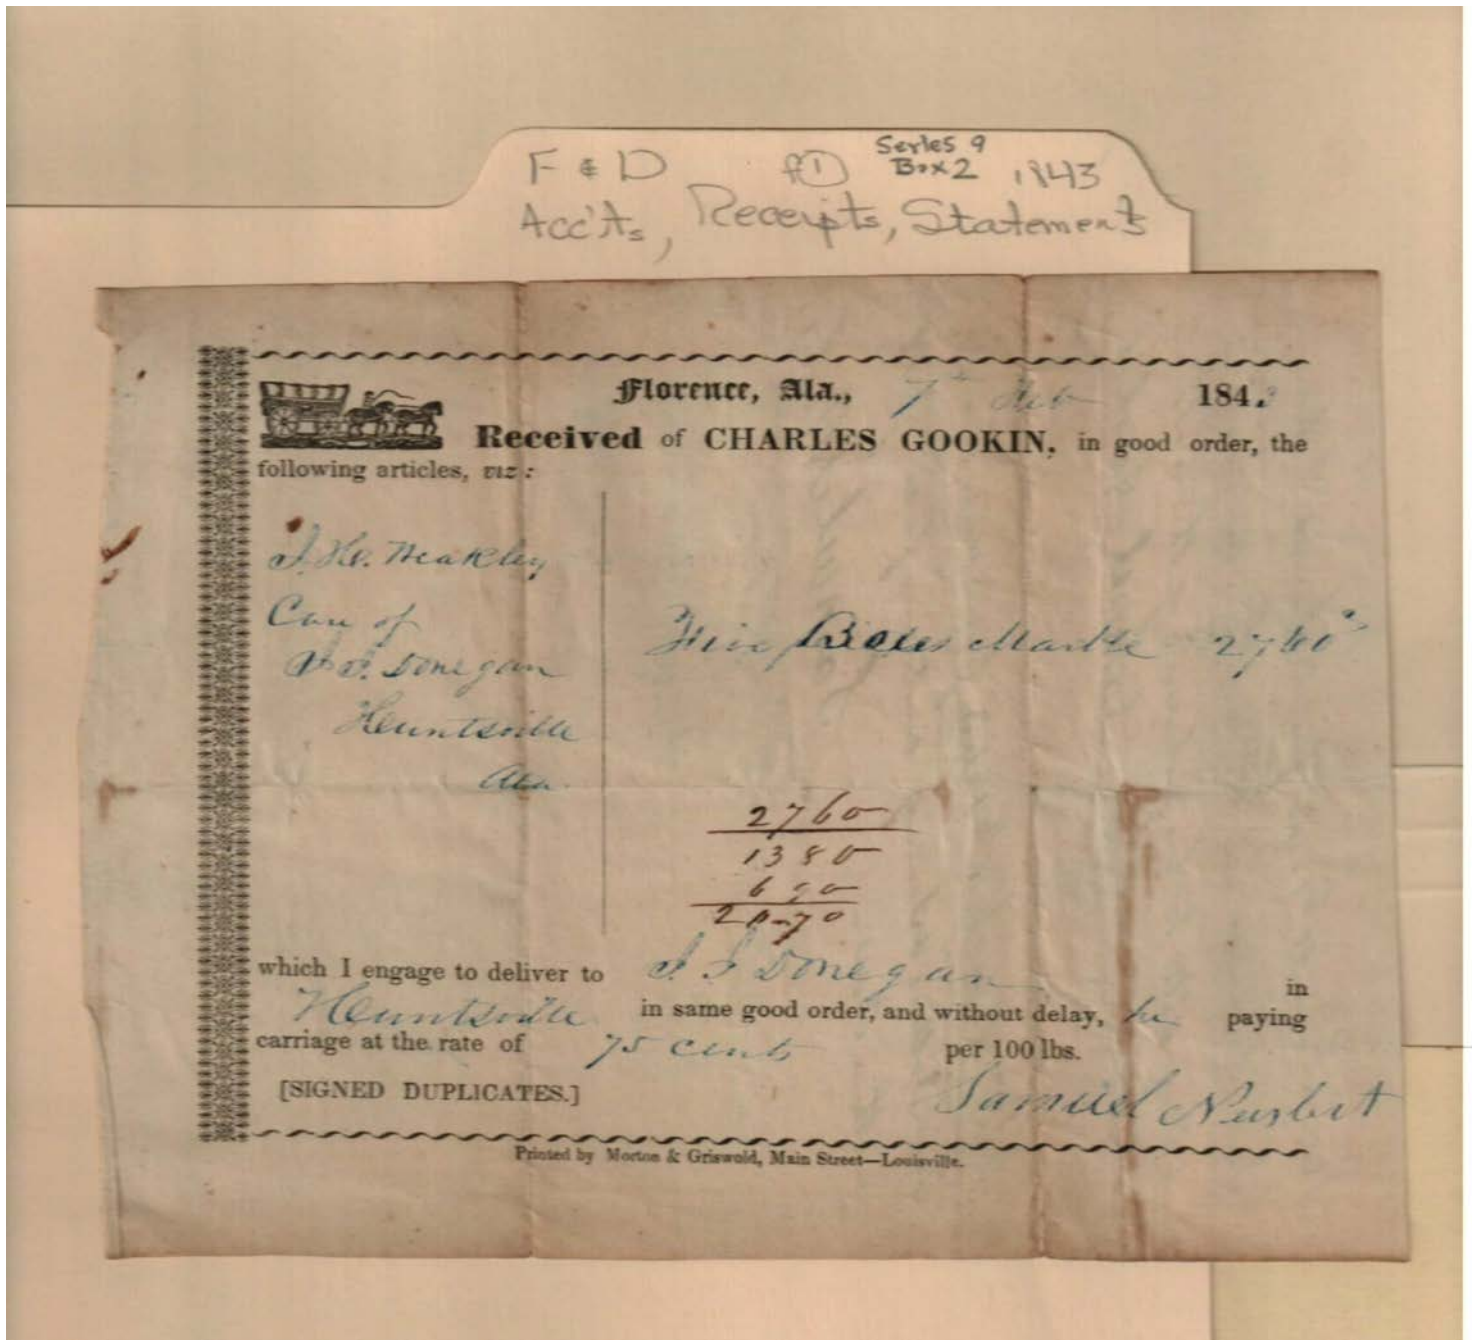 F & D f① Series 9 Box 2 1843
Acc'ts, Receipts, Statements
Florence, Ala., 7th Feb 1843
Received of CHARLES GOOKIN, in good order, the
following articles, viz:
Weakley
Care of
Donegan
Huntsville
Ala.
Five Marble 2760
2760
1380
690
2070
which I engage to deliver to J J Donegan in
Huntsville in same good order, and without delay, he paying
carriage at the rate of 75 cents per 100 lbs.
[SIGNED DUPLICATES.]
Samuel
Printed by Morton & Griswold, Main Street—Louisville.